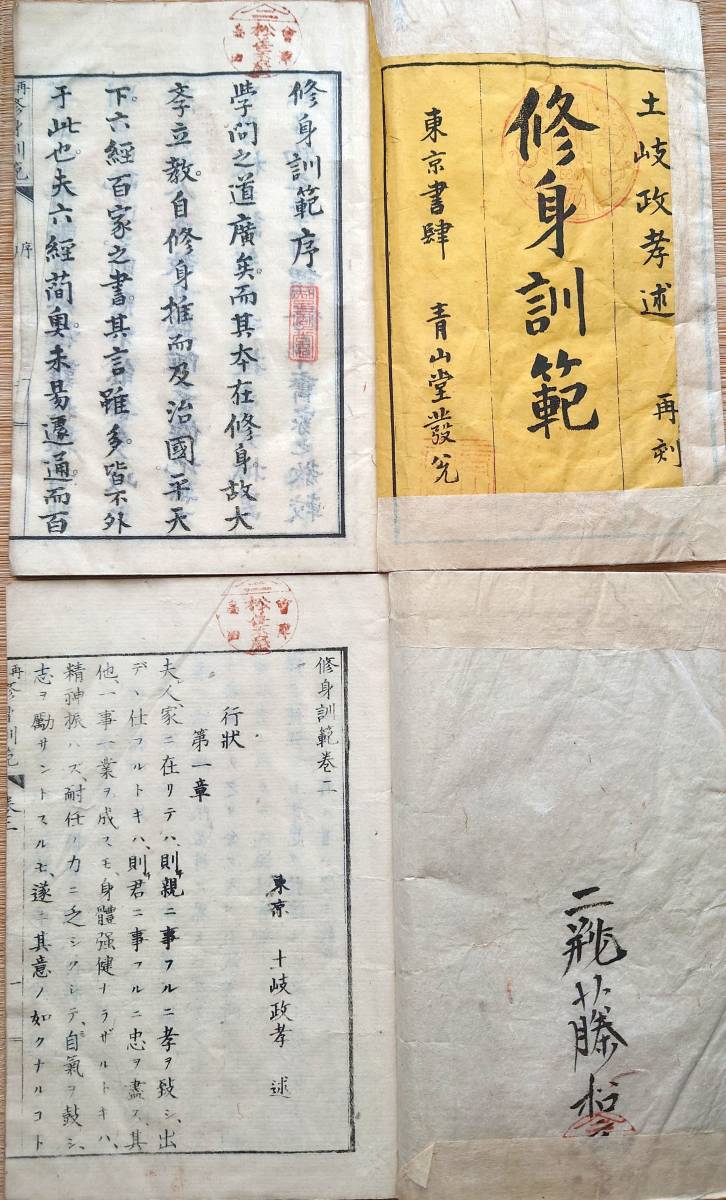 土岐政孝述 再刻
修身訓範
東京書肆 青山堂發兌
修身訓範序
學問之道廣矣而其本在修身故大
孝立教自修身推而及治國平天
下六經百家之書其言雖多皆不外
于此也夫六經簡奧未易遽通而百
再修身訓範 序
修身訓範卷二
東京 土岐政孝 述
行狀
第一章
夫人、家ニ在リテハ、則親ニ事フルニ孝ヲ致シ、出
デヽ仕フルトキハ、則君ニ事フルニ忠ヲ盡ス、其
他、一事一業ヲ成スモ、身體强健ナラザルトキハ、
精神振ハズ、耐任ノ力ニ乏シクシテ、自氣ヲ鼓シ、
志ヲ勵サントスルモ、遂ニ其意ノ如クナルコト
再修身訓範 卷二 一
二瓶
藤